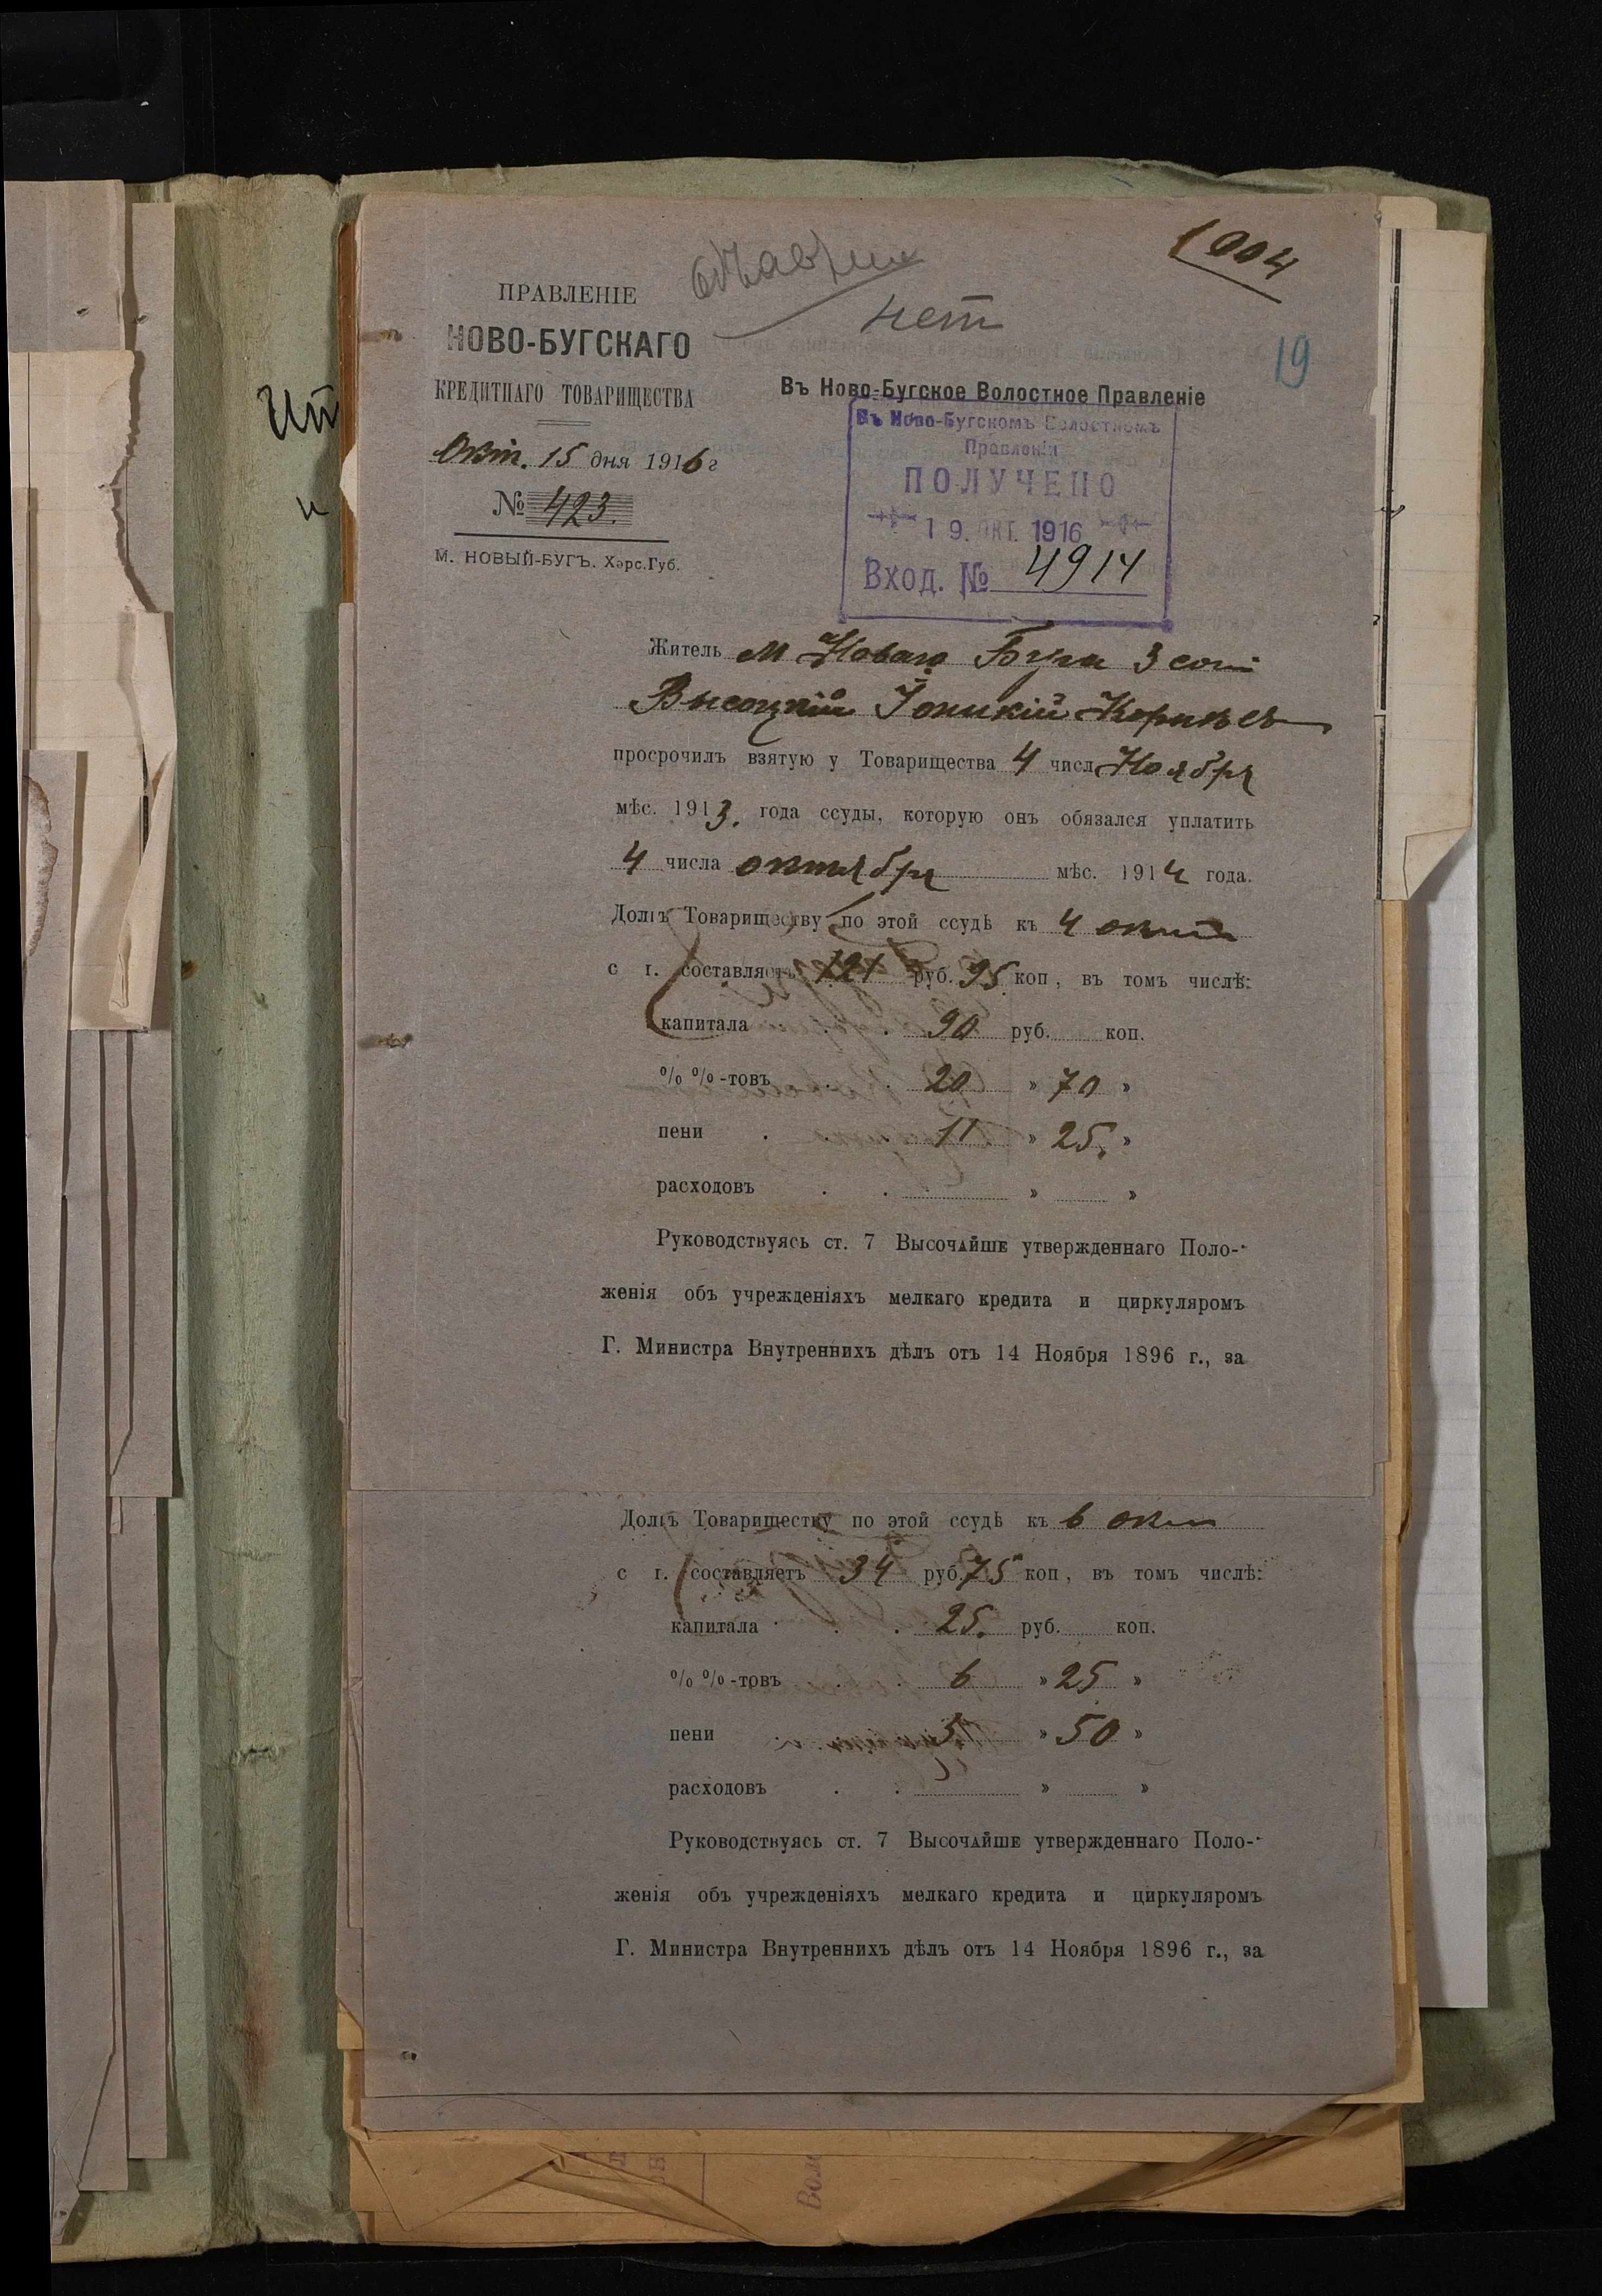 1004
нет
19
ПРАВЛЕНІЕ
НОВО-БУГСКАГО
КРЕДИТНАГО ТОВАРИЩЕСТВА
Окт. 15 дня 1916 г
№ 423.
М. НОВЫЙ-БУГЪ. Херс. Губ.
Въ Ново-Бугское Волостное Правленіе
Въ Ново-Бугскомъ Волостномъ
Правленіи
ПОЛУЧЕНО
19. ОКТ. 1916
Вход. № 4914
Житель М Новаго Буга 3 сот
Высоцкій Іоникій
просрочилъ взятую у Товарищества 4 числ Ноября
мѣс. 1913. года ссуды, которую онъ обязался уплатить
4 числа октября мѣс. 1914 года.
Долгъ Товариществу по этой ссудѣ къ 4 окт
с г. составляетъ 121 руб. 95 коп, въ томъ числѣ:
капитала . . 90 руб. коп.
% %-товъ . . 20 » 70 »
пени . . 11 » 25. »
расходовъ . . » »
Руководствуясь ст. 7 Высочайше утвержденнаго Поло-
женія объ учрежденіяхъ мелкаго кредита и циркуляромъ
Г. Министра Внутреннихъ дѣлъ отъ 14 Ноября 1896 г., за
Долгъ Товариществу по этой ссудѣ къ 6 окт
с г. составляетъ 34 руб. 75 коп, въ томъ числѣ:
капитала . . 25. руб. коп.
% %-товъ . . 6 » 25 »
пени . . 3 » 50 »
расходовъ . . » »
Руководствуясь ст. 7 Высочайше утвержденнаго Поло-
женія объ учрежденіяхъ мелкаго кредита и циркуляромъ
Г. Министра Внутреннихъ дѣлъ отъ 14 Ноября 1896 г., за